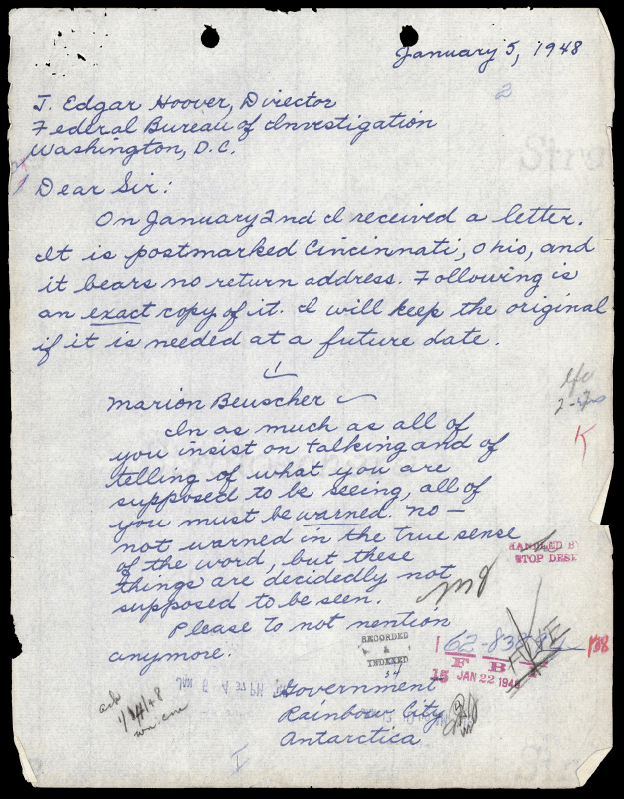 January 5, 1948
2
J. Edgar Hoover, Director
Federal Bureau of Investigation
Washington, D.C.
Dear Sir:
On January 2nd I received a letter.
It is postmarked Cincinnati, Ohio, and
it bears no return address. Following is
an exact copy of it. I will keep the original
if it is needed at a future date.
Marion Beuscher
In as much as all of
you insist on talking and of
telling of what you are
supposed to be seeing, all of
you must be warned. no —
not warned in the true sense
of the word, but these
things are decidedly not
supposed to be seen.
Please to not mention
anymore.
Government
Rainbow City
Antarctica
K
HANDLED BY
STOP DESK
RECORDED
&
INDEXED
34
62-83
138
F B I
15 JAN 22 1948
ack